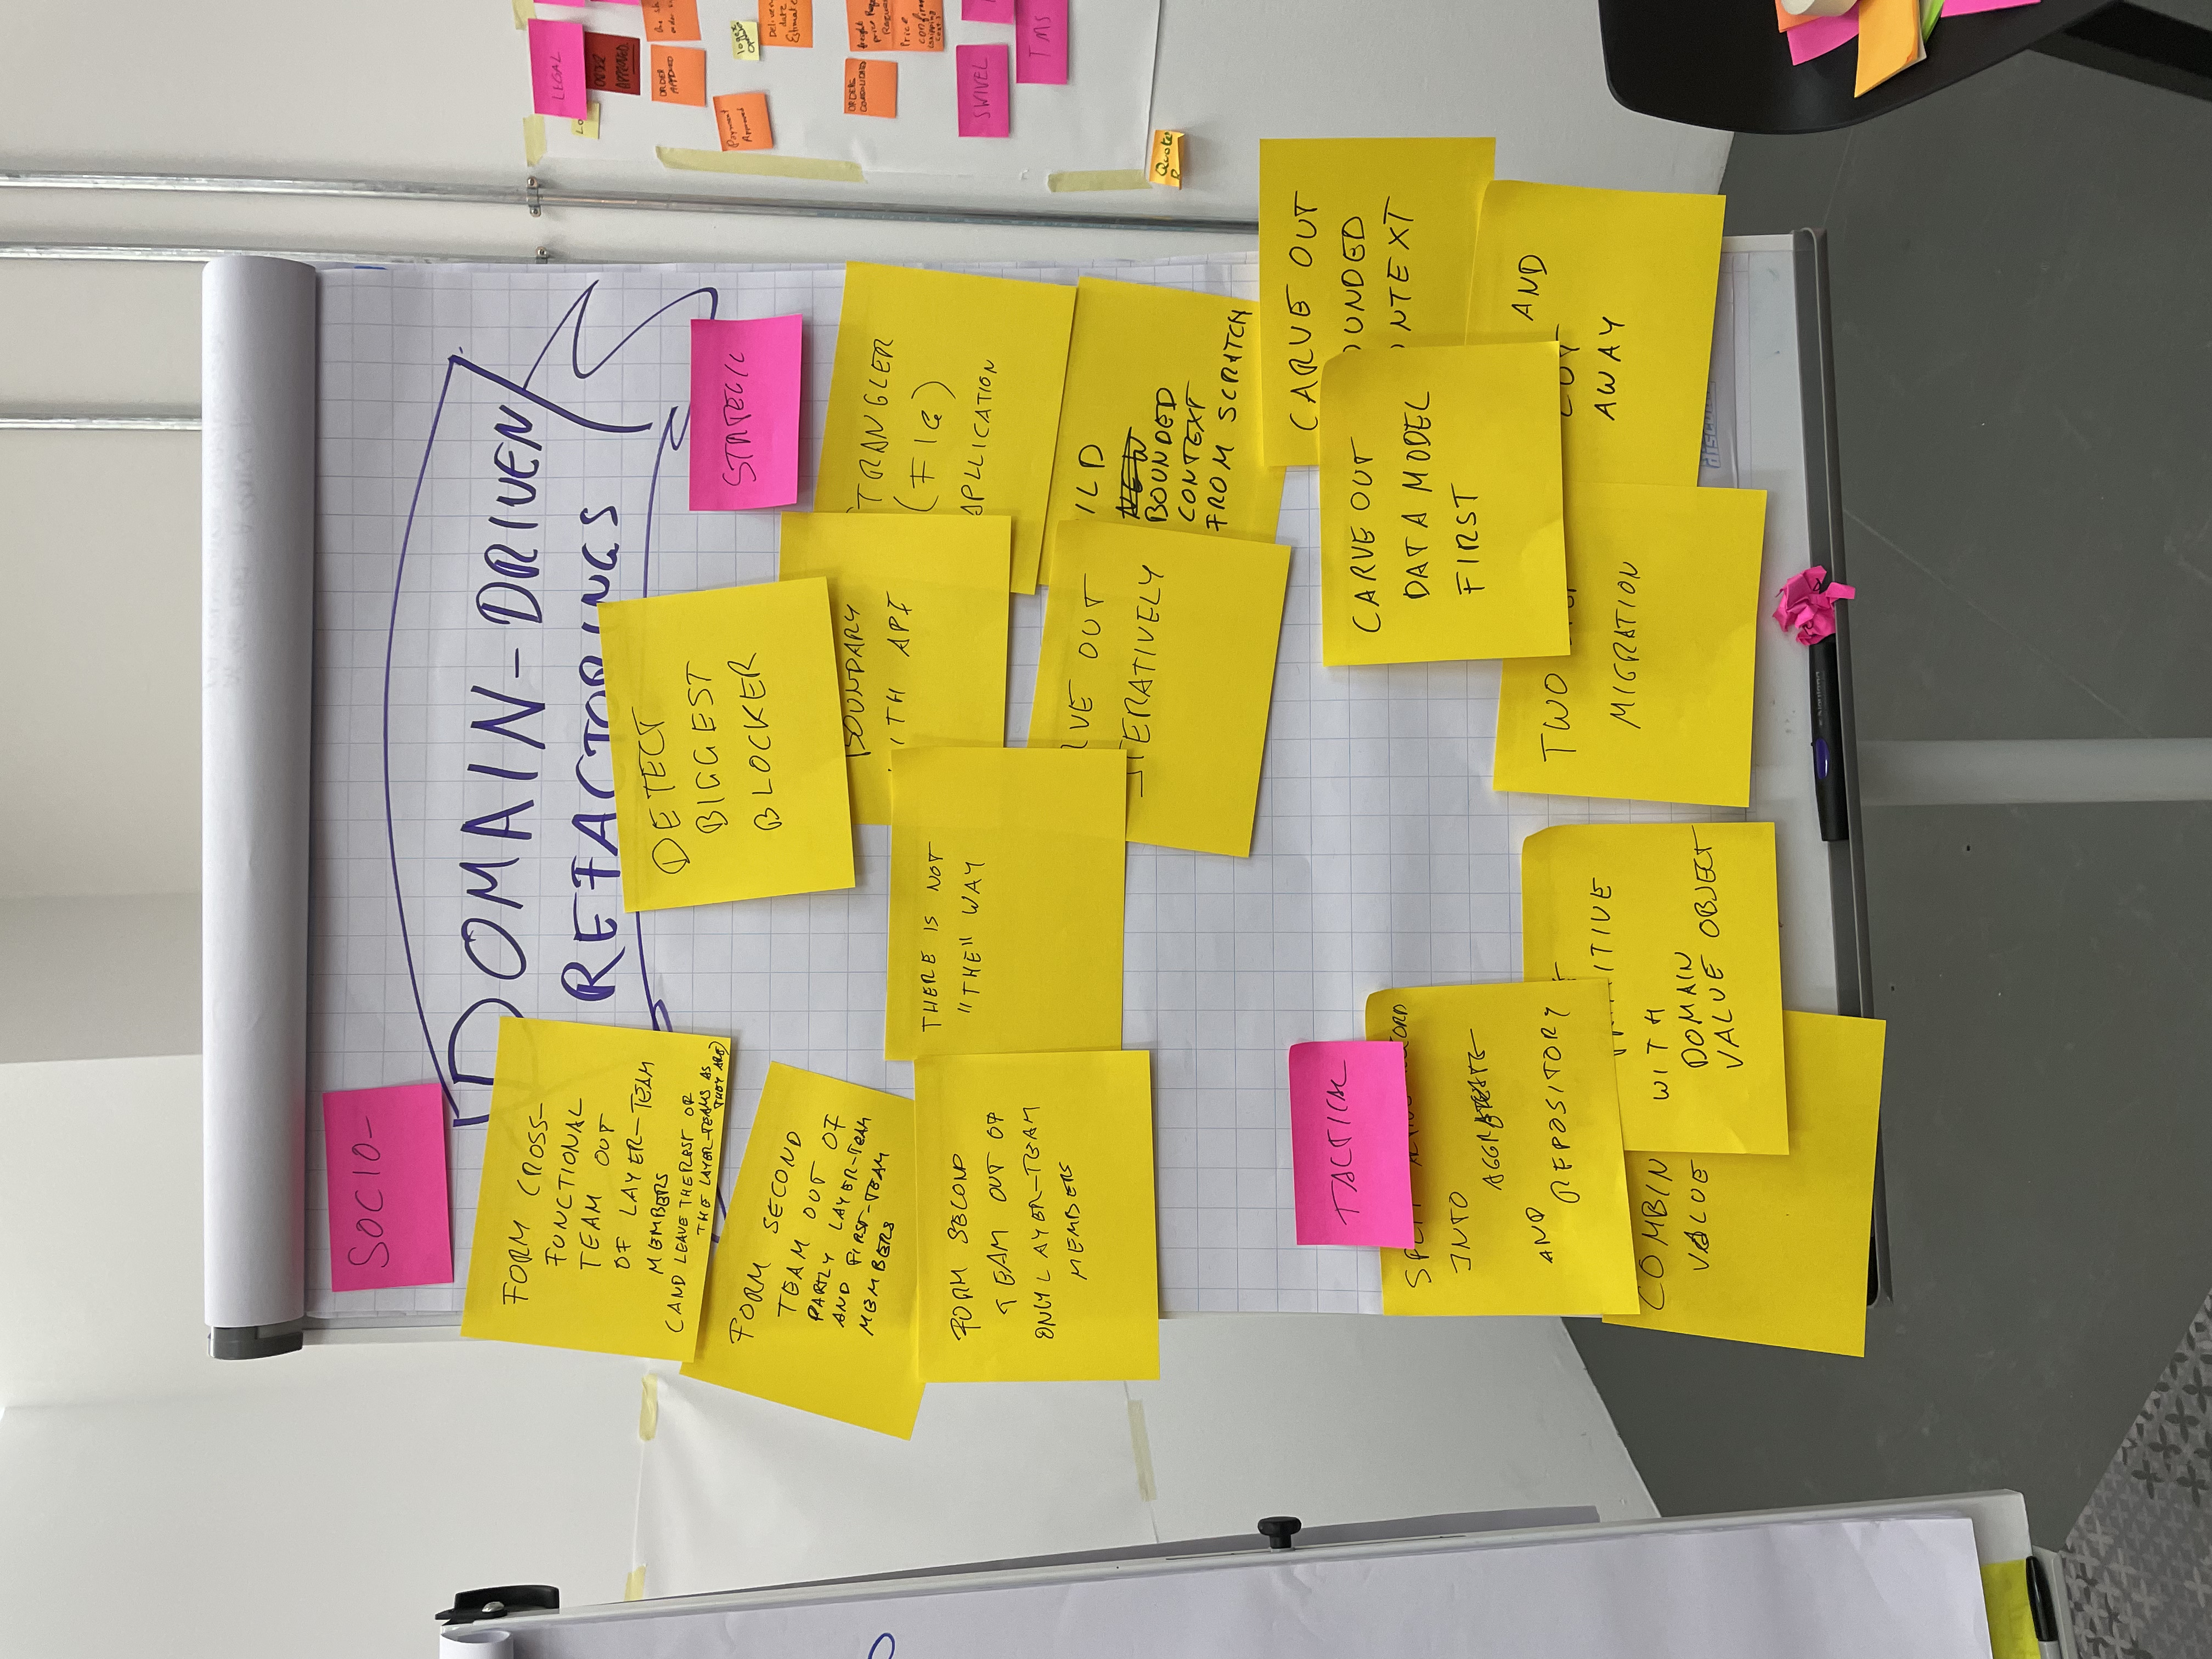 SOCIO-
DOMAIN-DRIVEN
REFACTORINGS
FORM CROSS-
FUNCTIONAL
TEAM OUT
OF LAYER-TEAM
MEMBERS
(AND LEAVE THE REST OF
THE LAYER-TEAMS AS
THEY ARE)
FORM SECOND
TEAM OUT OF
PARTLY LAYER-TEAM
AND FIRST-TEAM
MEMBERS
FORM SECOND
TEAM OUT OF
ONLY LAYER-TEAM
MEMBERS
THERE IS NOT
"THE" WAY
DETECT
BIGGEST
BLOCKER
STATEGIC
BOUNDARY
ITH API
TRANGLER
(FIG)
APLLICATION
RVE OUT
ITERATIVELY
ILD
NEW
BOUNDED
CONTEXT
FROM SCRATCH
CARVE OUT
OUNDED
NTEXT
CARVE OUT
DATA MODEL
FIRST
AND
CUT
AWAY
TWO
MIGRATION
TACTICAL
SPLIT
INTO
AGGREGATE
AND
REPOSITORY
ITIVE
WITH
DOMAIN
VALUE OBJECT
COMBIN
VALUE
LEGAL
ORDER
APPROVED
ORDER
APPROVED
Payment
Approved
date
ORDERS
CONSOLIDATED
freight
Price
SWIVEL
TMS
Quote